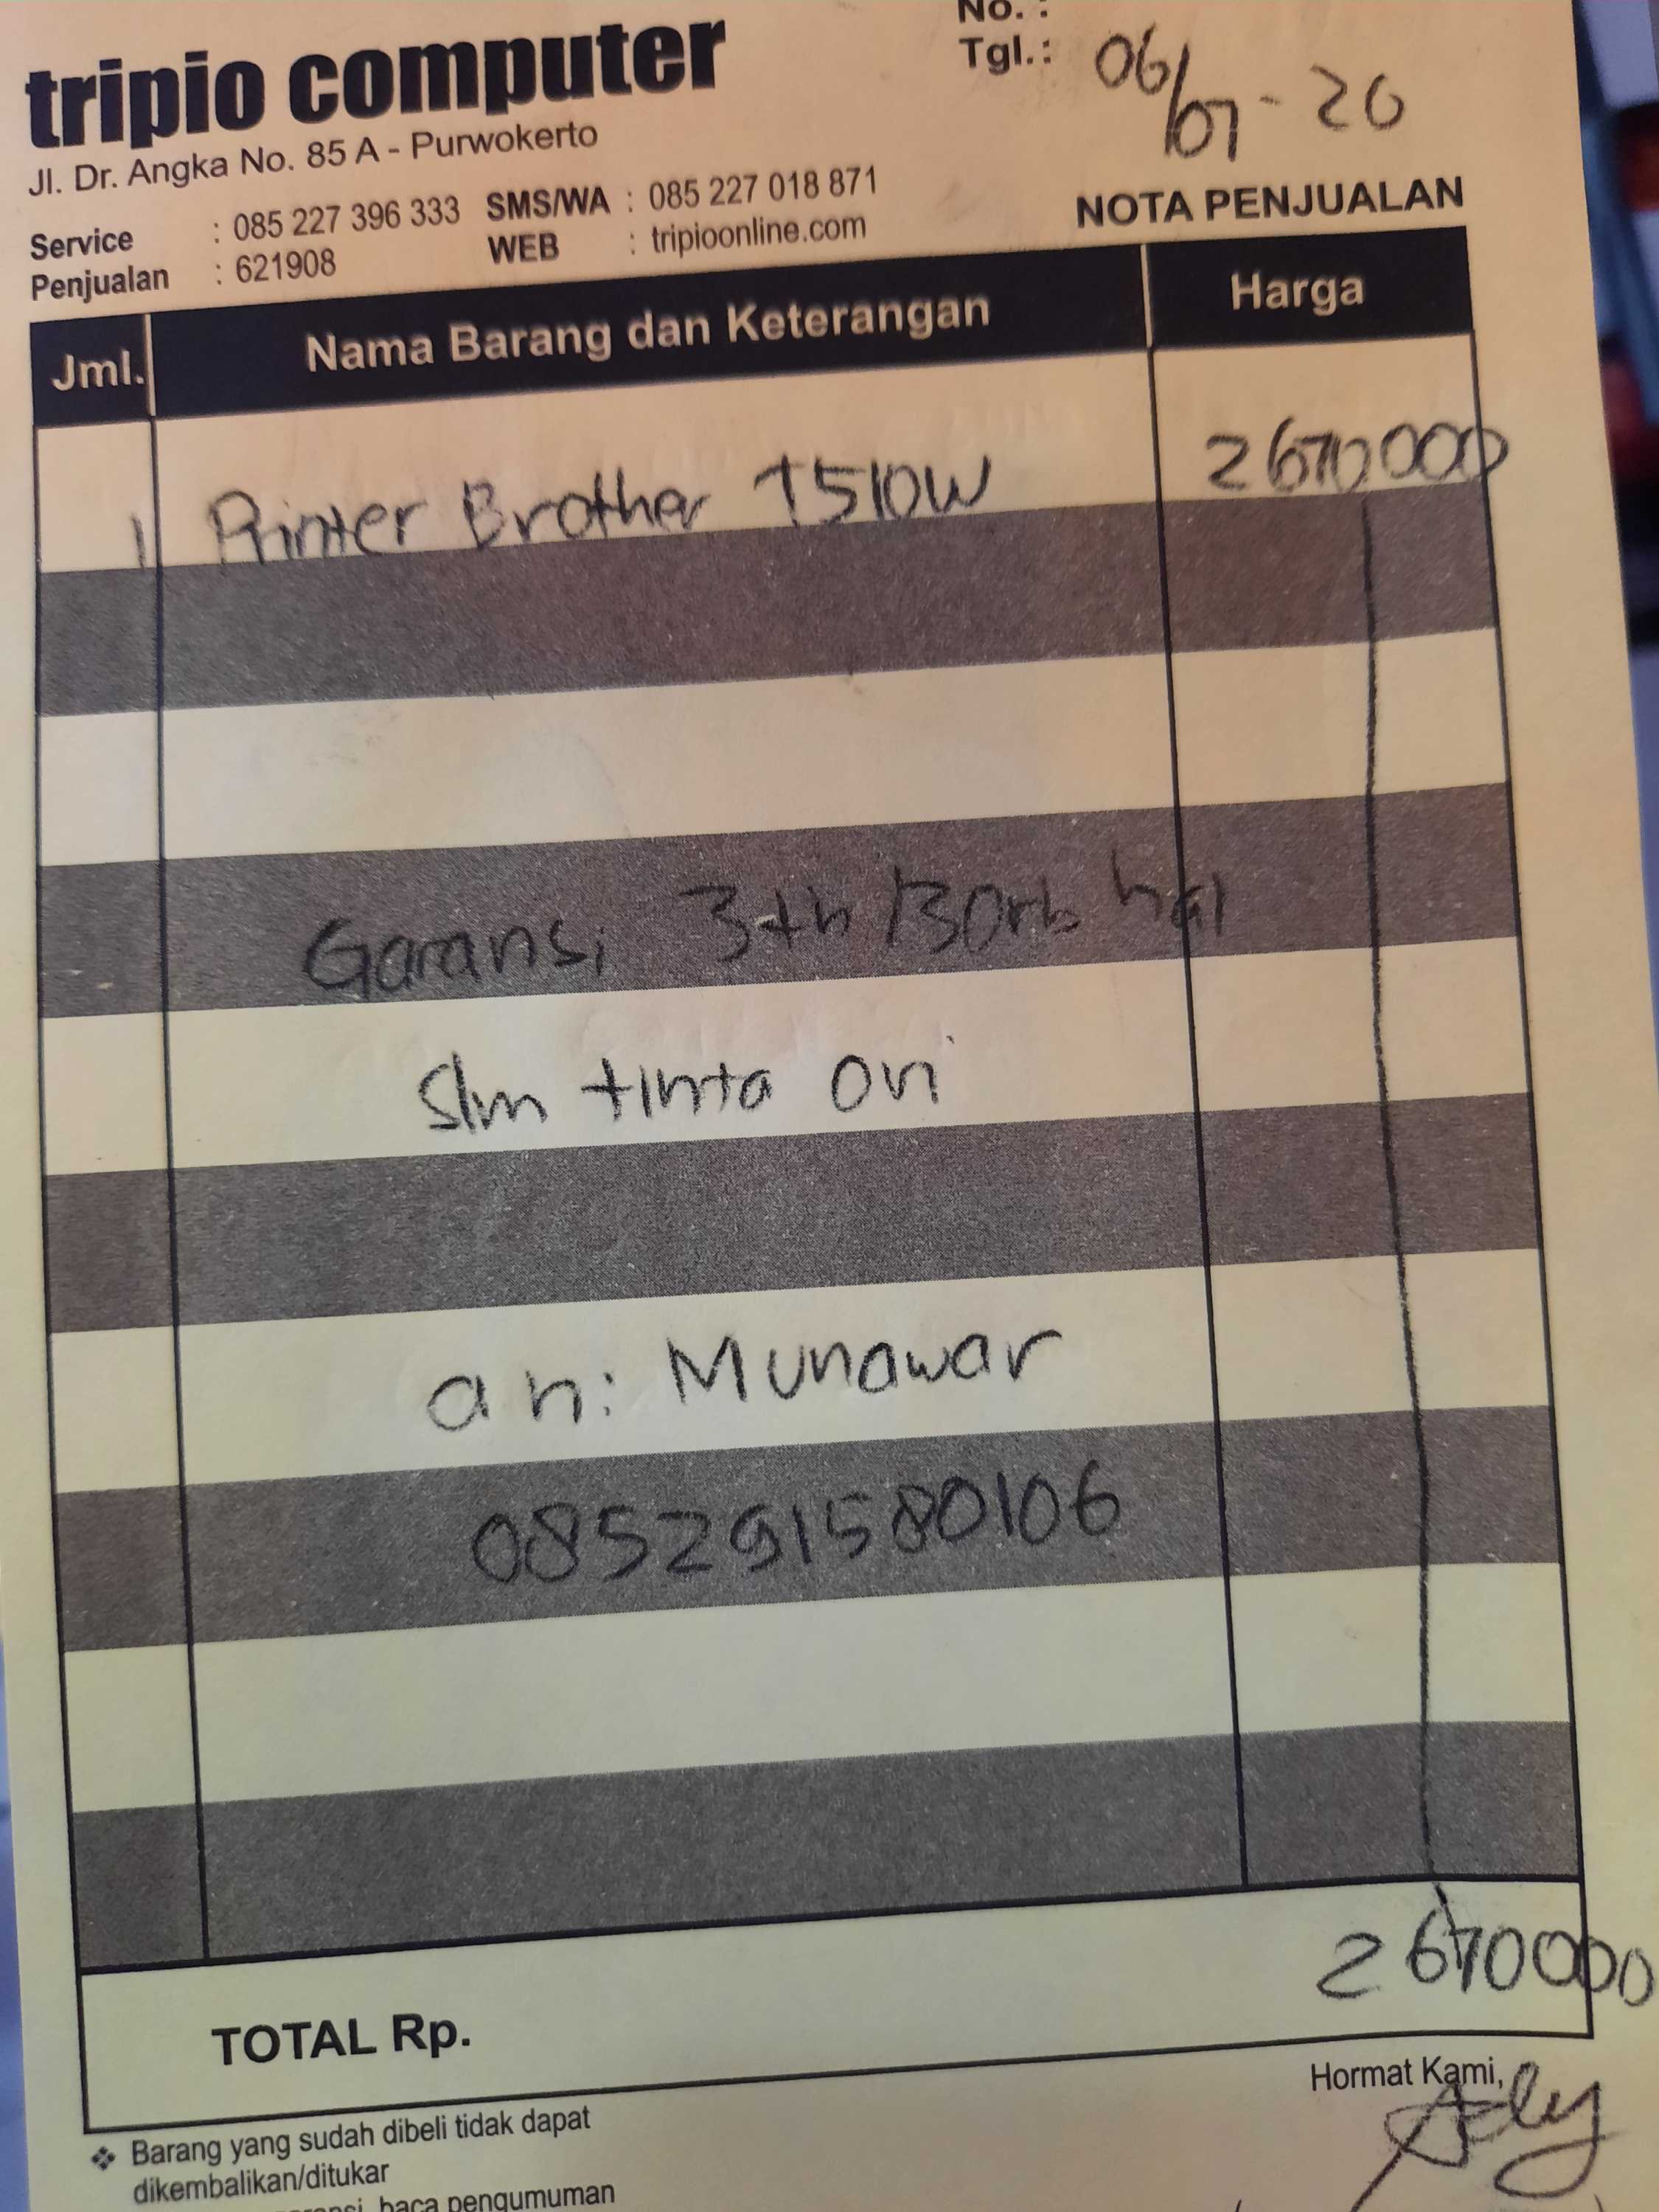 No. :
tripio computer
Tgl.: 06/07-20
Jl. Dr. Angka No. 85 A - Purwokerto
Service : 085 227 396 333 SMS/WA : 085 227 018 871
Penjualan : 621908 WEB : tripioonline.com
NOTA PENJUALAN
Jml. Nama Barang dan Keterangan Harga
1 Printer Brother T510W 2670000
Garansi 3th/30rb hal
Slm tinta Ori
an: Munawar
085291580106
2670000
TOTAL Rp.
Hormat Kami,
Barang yang sudah dibeli tidak dapat
dikembalikan/ditukar
baca pengumuman